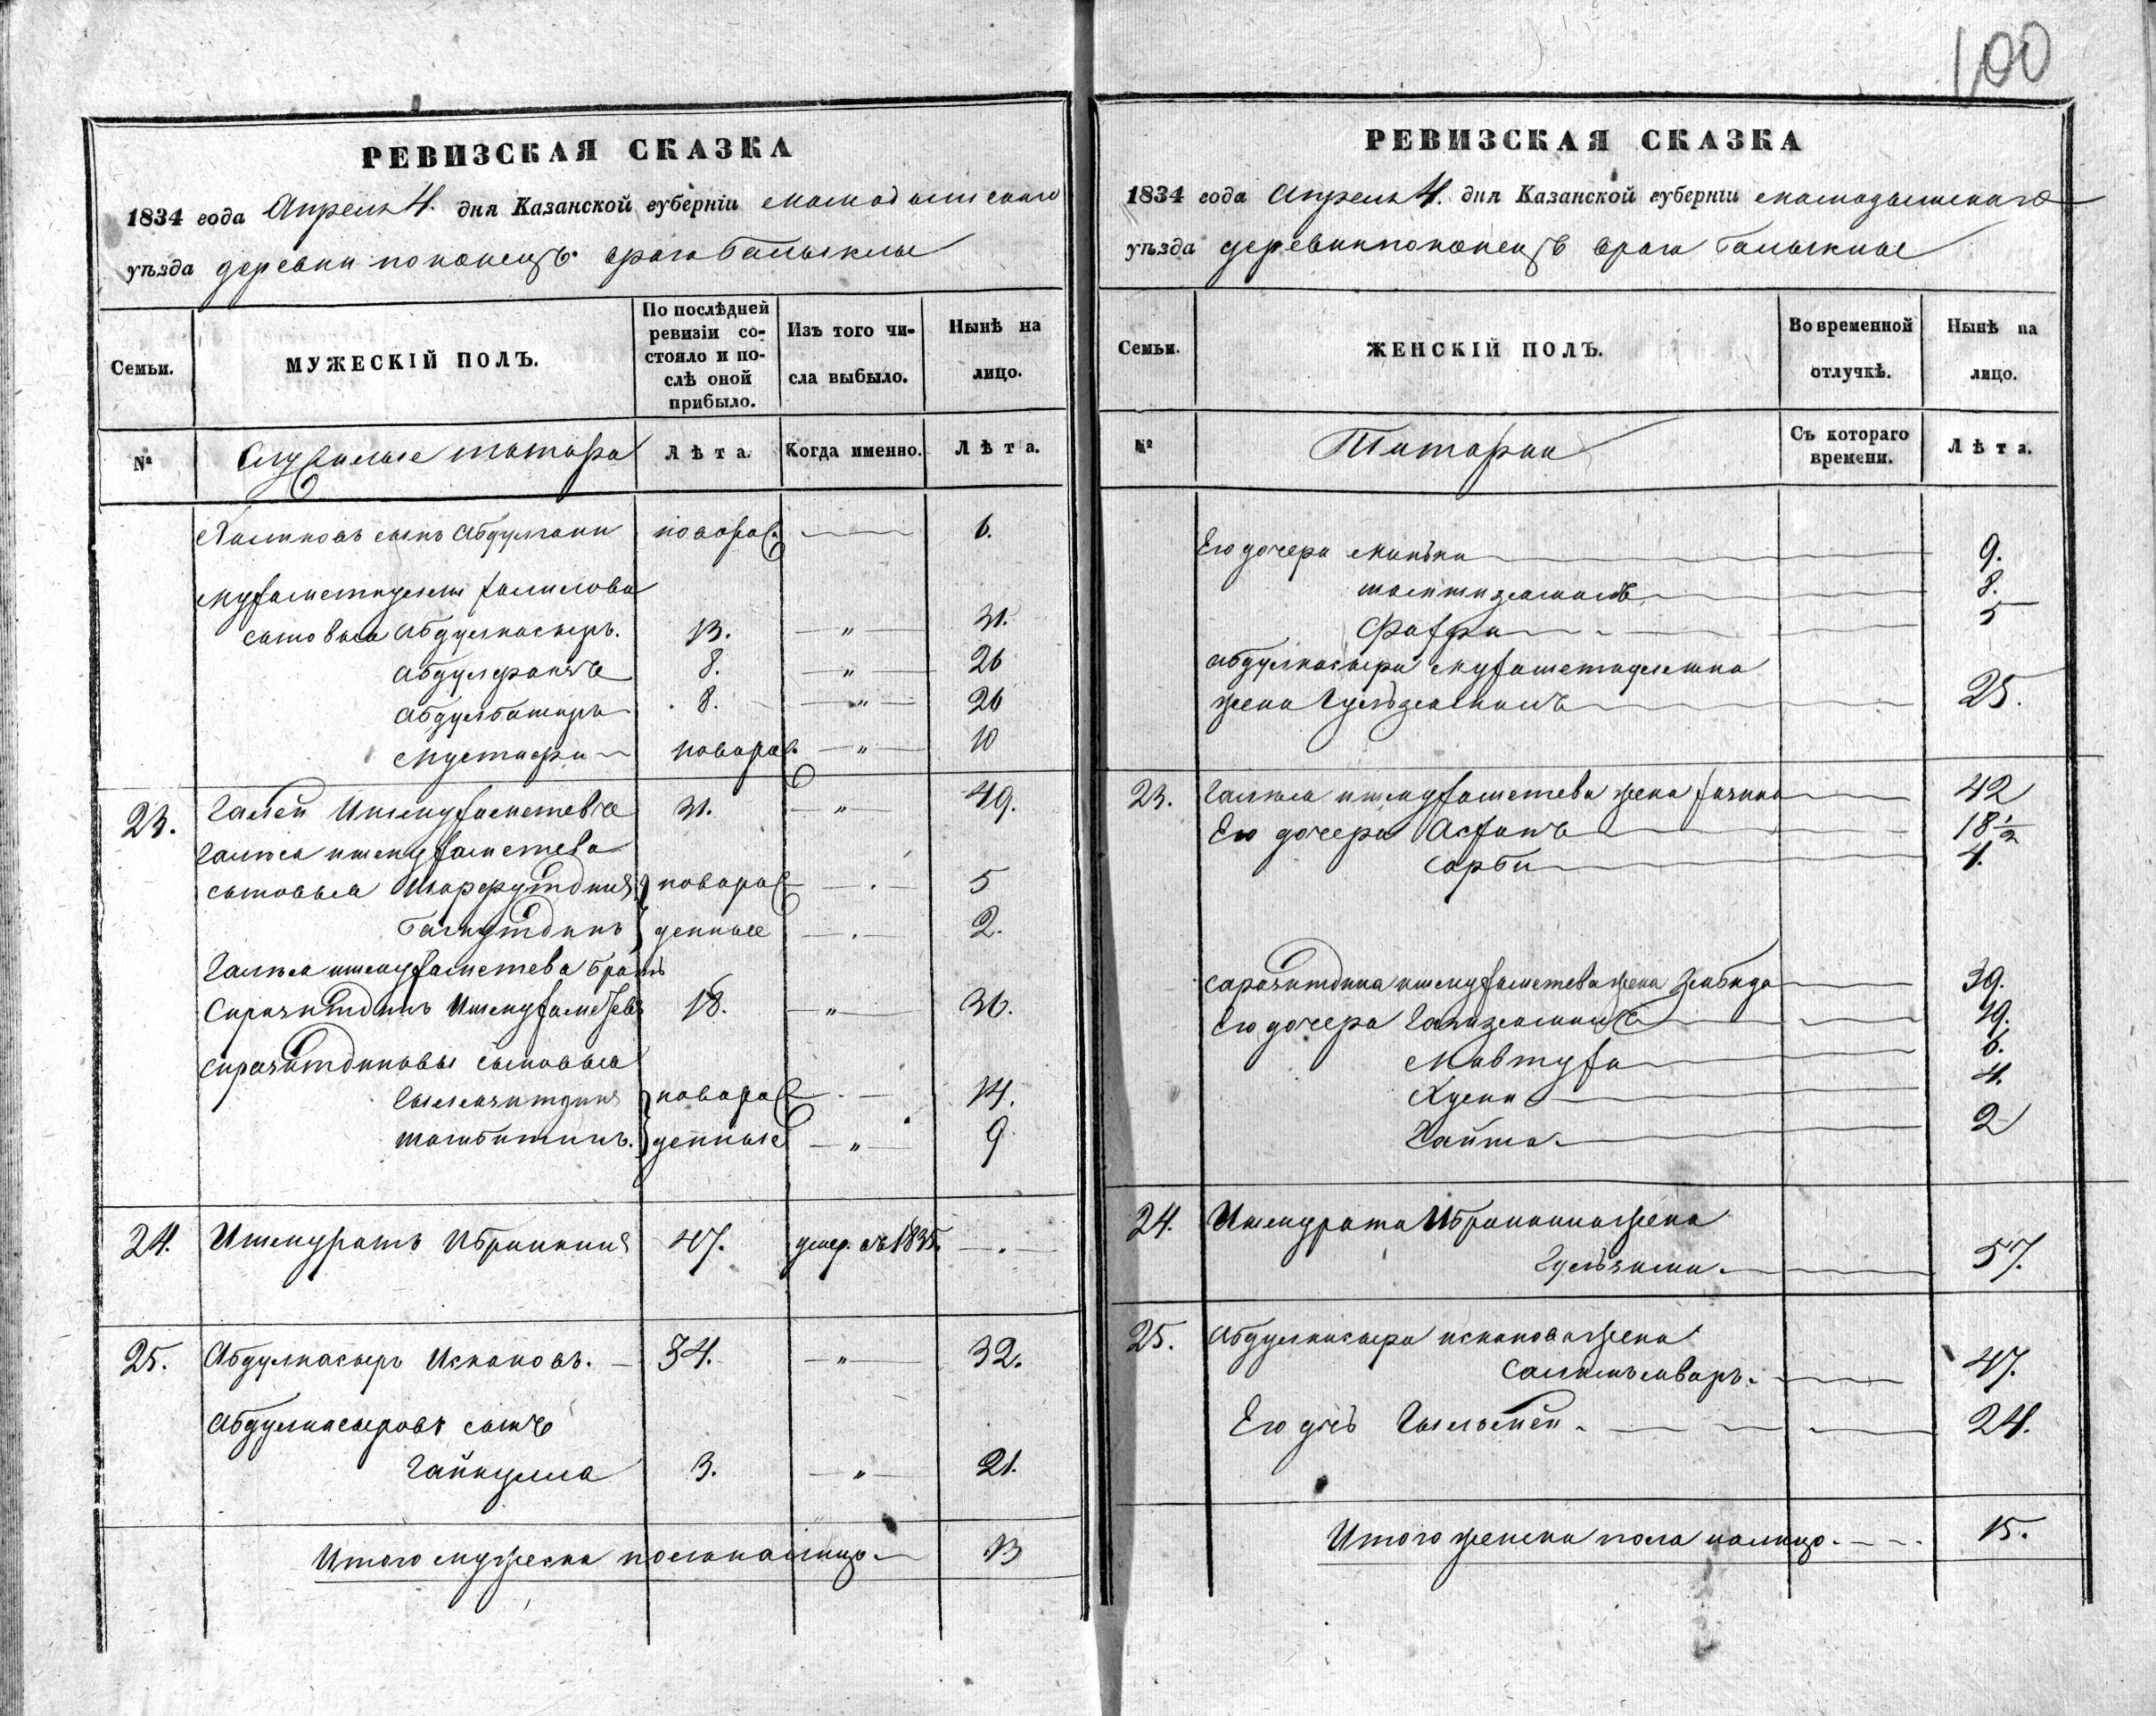 100
РЕВИЗСКАЯ СКАЗКА
1834 года Апреля 4. дня Казанской губерніи Мамадышскаго
уѣзда деревни поконецъ врага Балыклы
Семьи.
МУЖЕСКІЙ ПОЛЪ.
По послѣдней ревизіи состояло и послѣ оной прибыло.
Изъ того числа выбыло.
Нынѣ на лицо.
№
Служилые татара
Лѣта.
Когда именно.
Лѣта.
сынъ Абдулгани новорож. 6.
Мухаметкулыя Халилова
сыновья Абдулнасыръ. 13. — „ — 31.
8. — „ — 26
Абдулбашыръ 8. — „ — 26
Мустафа новорож. — „ — 10
23. Галей Ишмухаметевъ 31. — „ — 49.
Галея ишмухаметева
сыновья Шарафутдинъ новорож 5
денные 2.
Галея ишмухаметева братъ
Сиразитдинъ Ишмухаметевъ 18. — „ — 36.
Сиразитдиновы сыновья
новорож 14.
денные — „ — 9
24. Ишмуратъ Ибраимия 47. умер. въ 1835.
25. Абдулнасыръ Искаковъ. 34. — „ — 32.
Абдулнасыровъ сынъ
Гайнулла 3. — „ — 21.
Итого мужеска пола налицо. 13
РЕВИЗСКАЯ СКАЗКА
1834 года Апреля 4. дня Казанской губерніи Мамадышскаго
уѣзда деревни поконецъ врага Балыклы
Семьи.
ЖЕНСКІЙ ПОЛЪ.
Во временной отлучкѣ.
Нынѣ на лицо.
№
Татарки
Съ котораго времени.
Лѣта.
Его дочери 9.
8.
5
Абдулнасыра Мухаметкулыя
жена Гульзямалъ 25.
23. Галея ишмухаметева жена 42
Его дочери 18 1/2
Сарби 4.
Сиразитдина ишмухаметева жена Зюбида 39.
Его дочери 19.
Мавтуха 6.
4.
2
24. Ишмурата Ибраимия жена
57.
25. Абдулнасыра искакова жена
47.
Его дочь 24.
Итого женска пола налицо. 15.